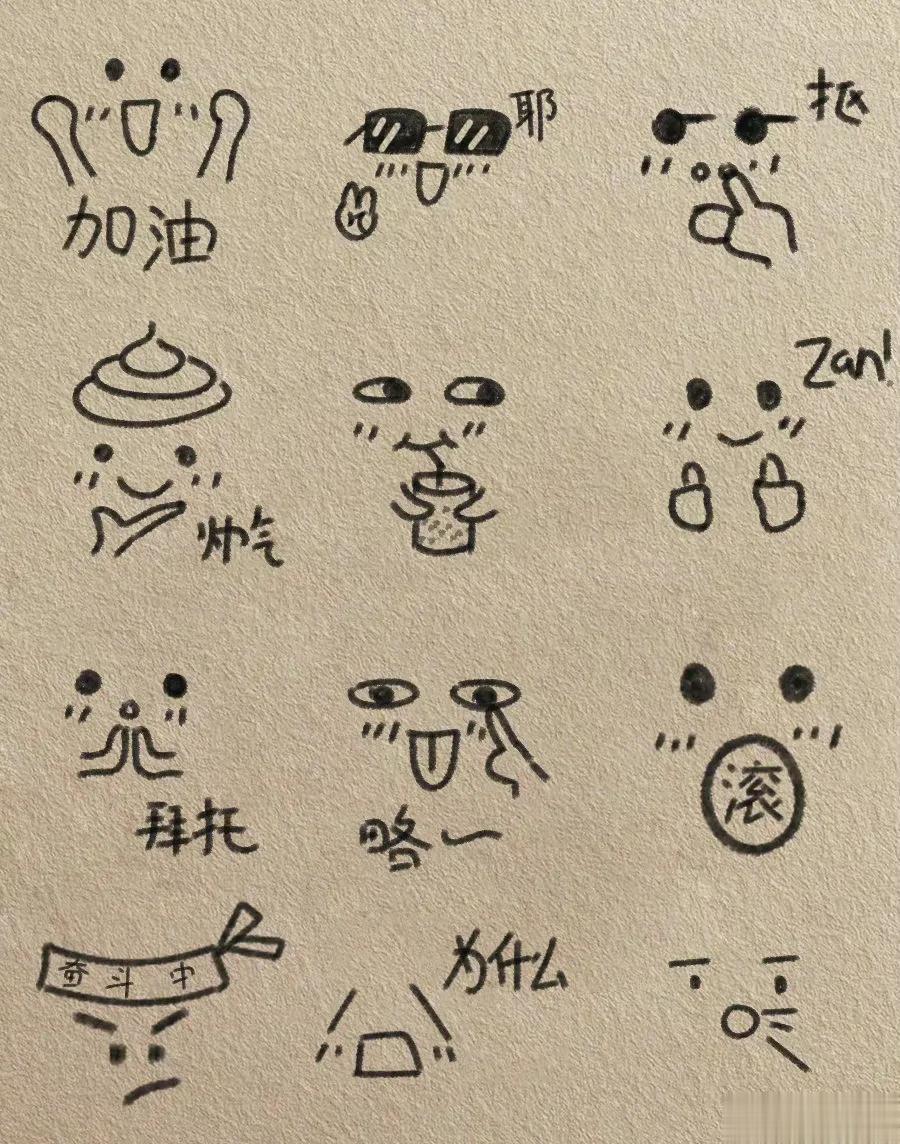 加油
耶
抠
帅气
Zan!
拜托
略~
滚
奋斗 中
为什么